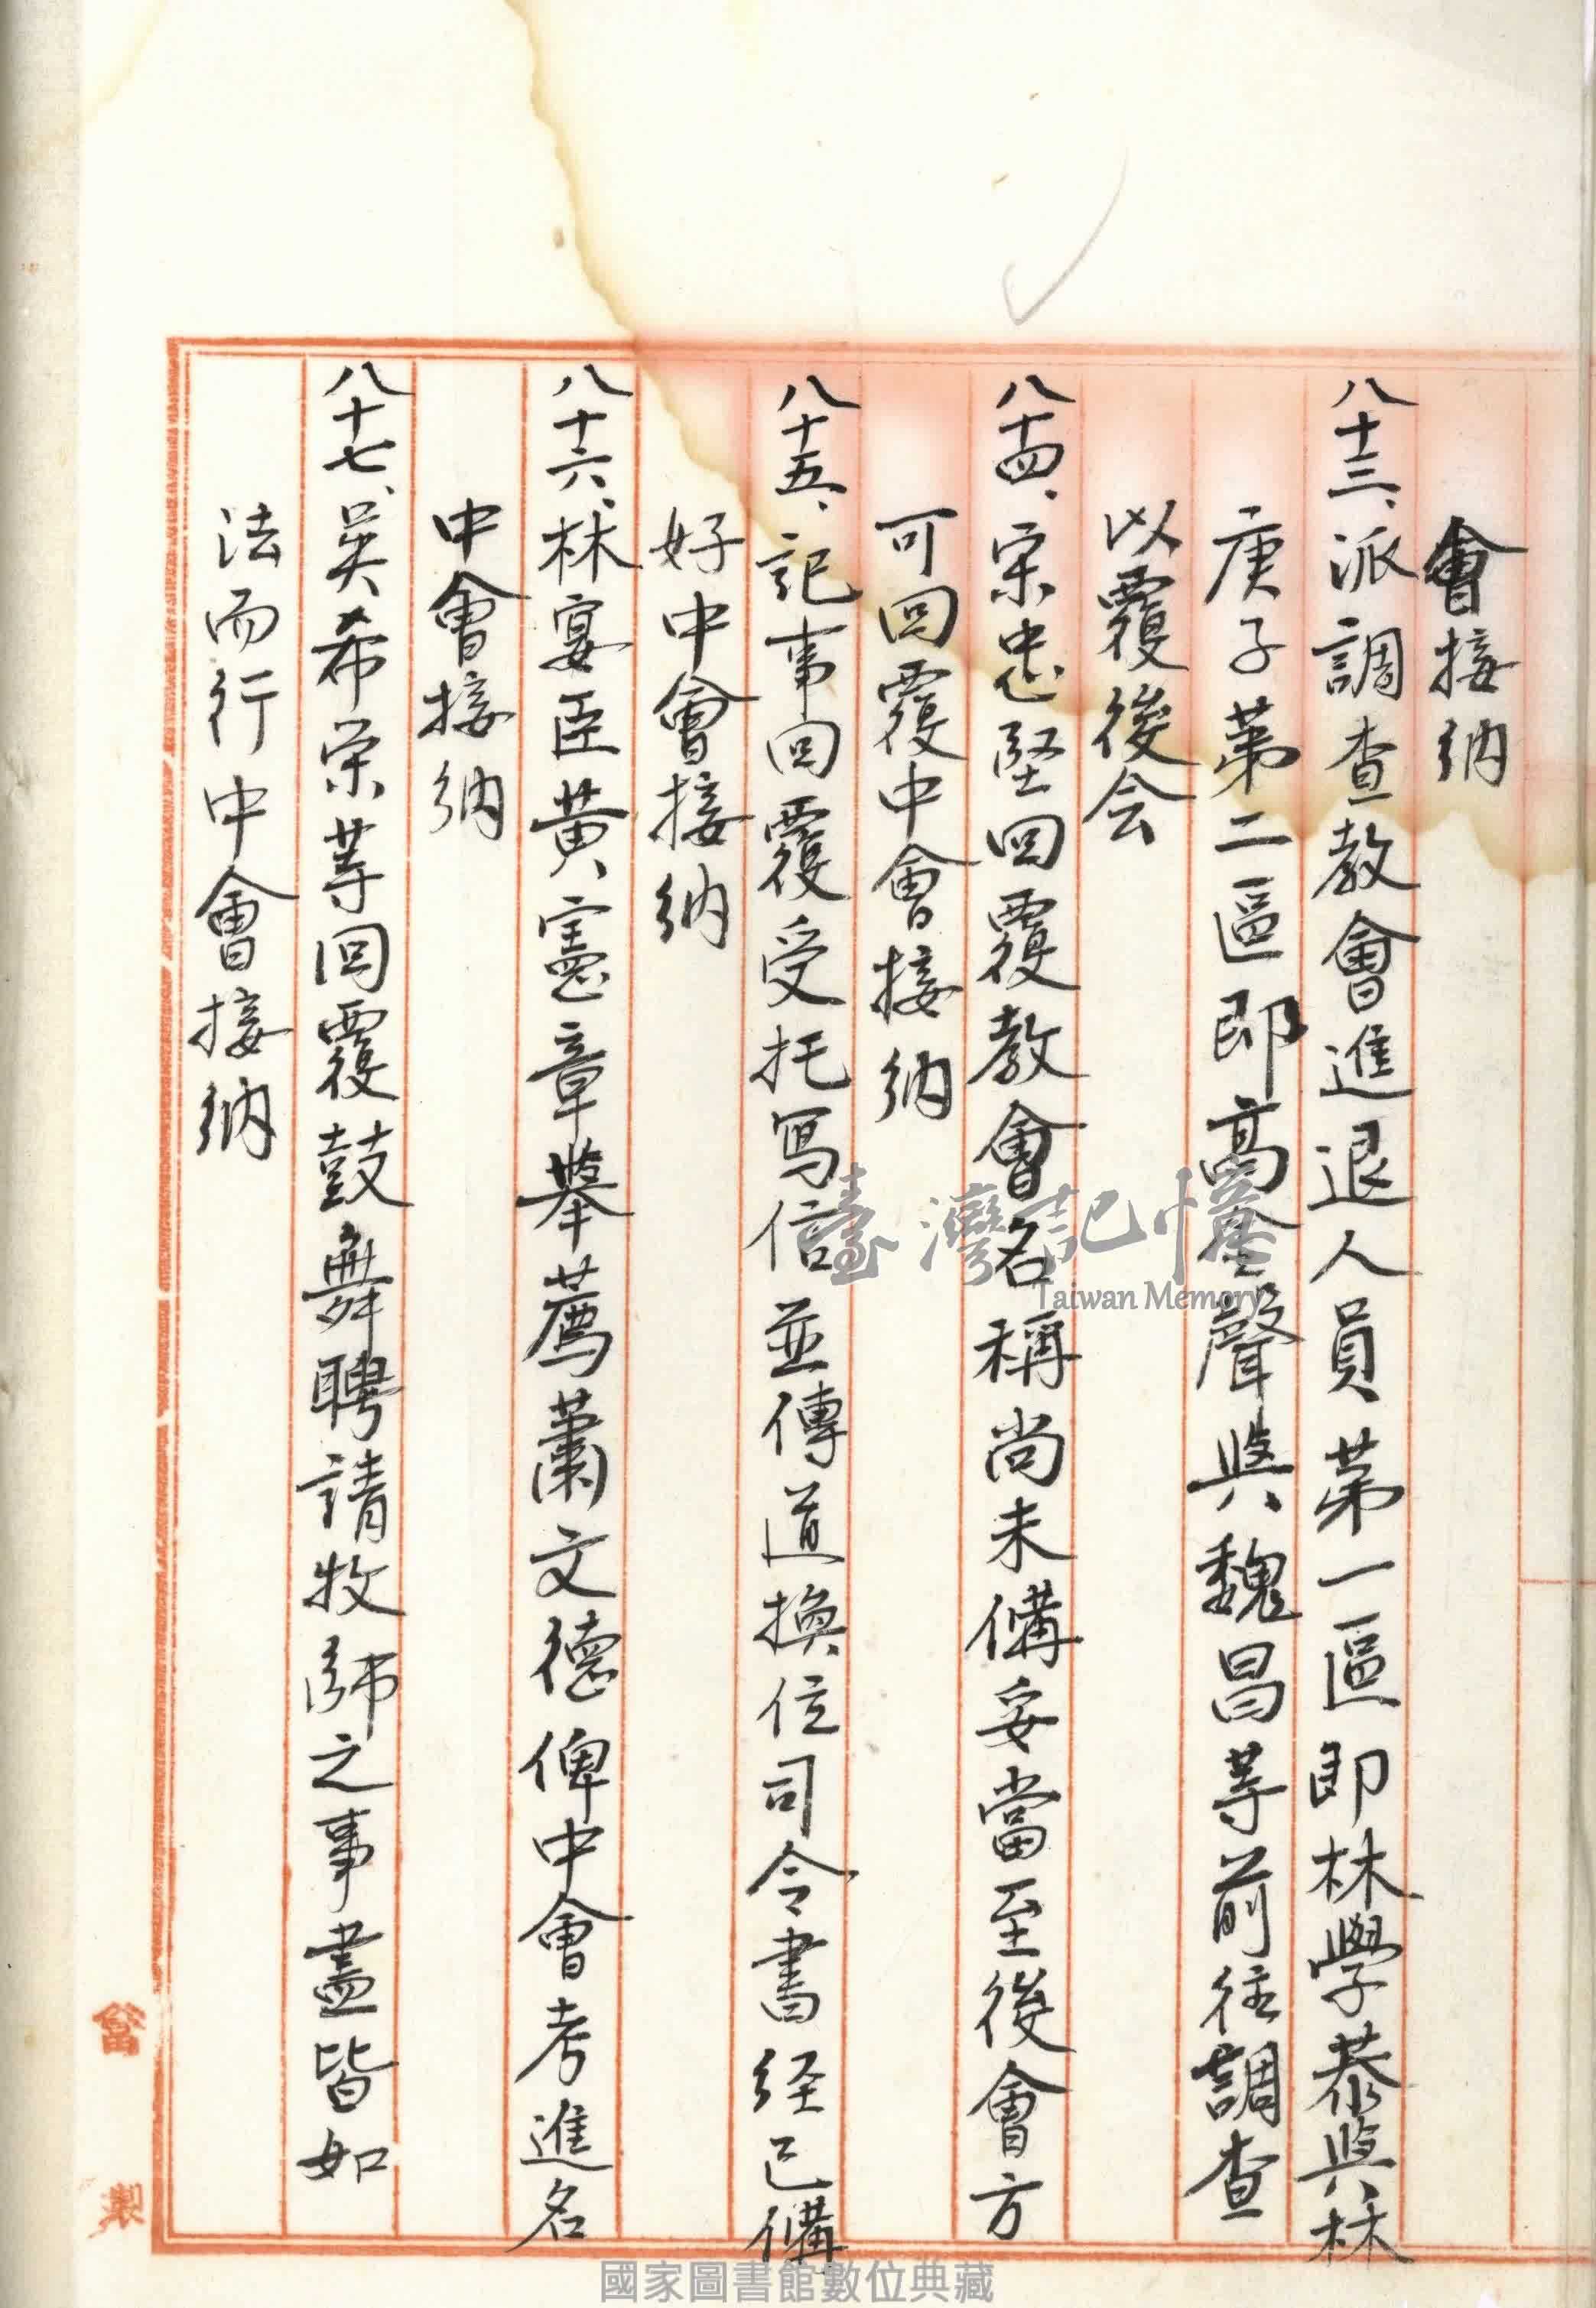 會接納
八十三、派調查教會進退人員第一區即林學恭與林
庚子第二區即高金聲與魏昌等前往調查
以覆後会
八十四、宋忠堅回覆教會名稱尚未備妥當至後會方
可回覆中會接納
八十五、記事回覆受托写信並傳道換位司令書經已備
好中會接納
八十六、林宴臣黄憲章舉薦蕭文德俾中會考進名
中會接納
八十七、吳希荣等回覆鼓舞聘請牧師之事盡皆如
法而行中會接納
臺灣記憶
Taiwan Memory
國家圖書館數位典藏